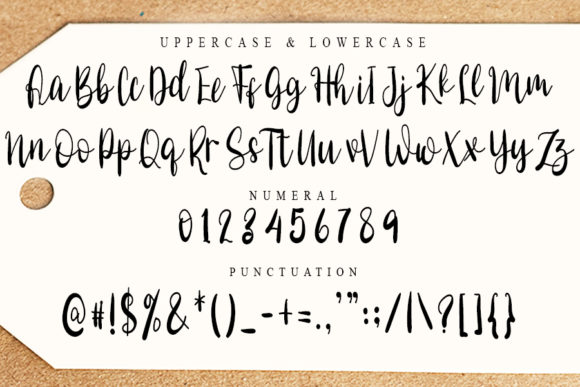 UPPERCASE & LOWERCASE
Aa Bb Cc Dd Ee Ff Gg Hh iI Jj Kk Ll Mm
Nn Oo Pp Qq Rr Ss Tt Uu vV Ww Xx Yy Zz
NUMERAL
0123456789
PUNCTUATION
@#!$%&*()_-+=.,'":;/|\?[]{}